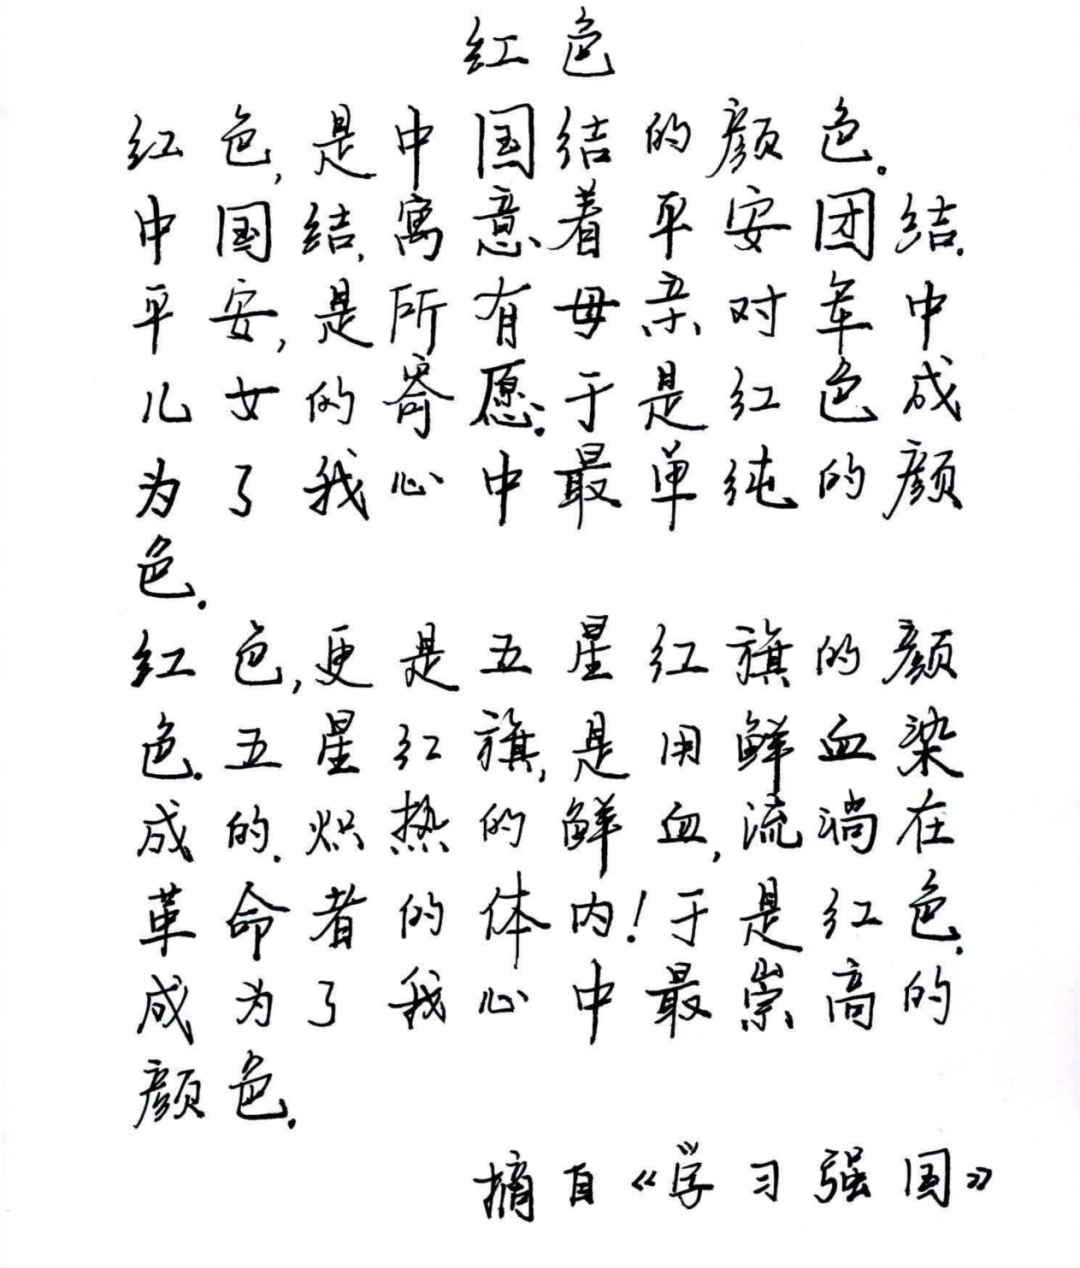 红色
红色,是中国结的颜色。
中国结,寓意着平安团结.
平安,是所有母亲对军中
儿女的寄愿.于是红色成
为了我心中最单纯的颜
色.
红色,更是五星红旗的颜
色.五星红旗,是用鲜血染
成的.炽热的鲜血,流淌在
革命者的体内!于是红色.
成为了我心中最崇高的
颜色.
摘自《学习强国》